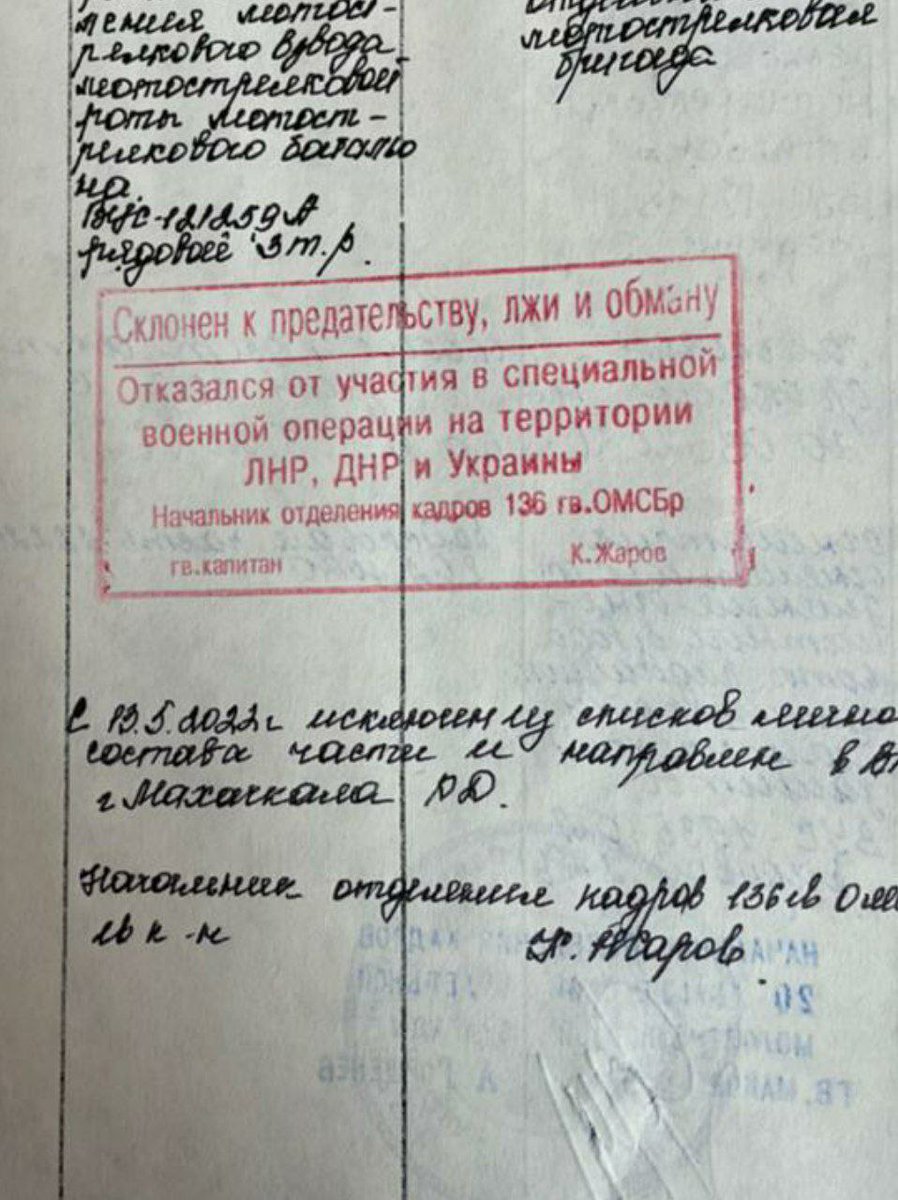 мения мотост-
релкового взвода
мотострелковой
роты мотост-
релкового батальо
на.
ВУС-121259А
рядовой 3 т.р.
мотострелковая
бригада
Склонен к предательству, лжи и обману
Отказался от участия в специальной
военной операции на территории
ЛНР, ДНР и Украины
Начальник отделения кадров 136 гв.ОМСБр
гв.капитан К.Жаров
С 13.5.2022г исключен из списков лично
состава части и направлен в В
г Махачкала РД.
Начальник отделения кадров 136 гв ОМ
гв к-н К. Жаров